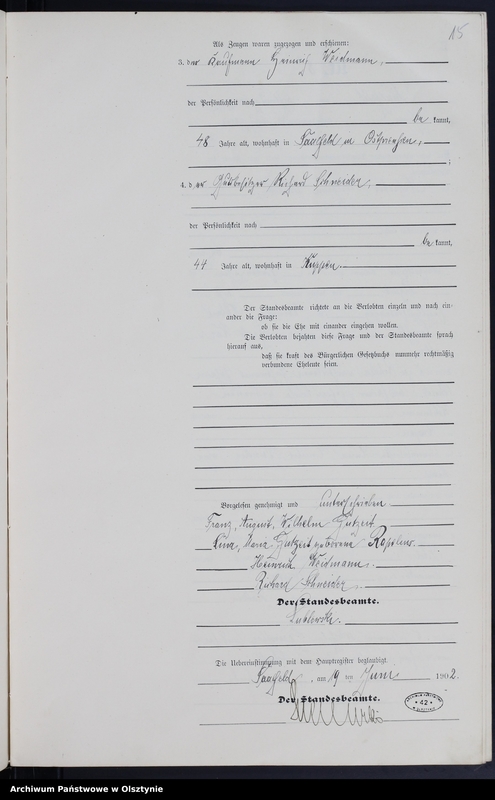 15
Als Zeugen waren zugezogen und erschienen:
3. der Kaufmann Heinrich Weidmann,
der Persönlichkeit nach
be kannt,
48 Jahre alt, wohnhaft in Saalfeld in Ostpreußen,
;
4. d er Gutsbesitzer Richard Schneider,
der Persönlichkeit nach
be kannt,
44 Jahre alt, wohnhaft in Kuppen.
Der Standesbeamte richtete an die Verlobten einzeln und nach ein-
ander die Frage:
ob sie die Ehe mit einander eingehen wollen.
Die Verlobten bejahten diese Frage und der Standesbeamte sprach
hierauf aus,
daß sie kraft des Bürgerlichen Gesetzbuchs nunmehr rechtmäßig
verbundene Eheleute seien.
Vorgelesen, genehmigt und unterschrieben
Franz, August, Wilhelm Gutzeit
Gutzeit geborene
Heinrich Weidmann.
Richard Schneider.
Der Standesbeamte.
Die Uebereinstimmung mit dem Hauptregister beglaubigt.
Saalfeld, am 19 ten Juni 1902.
Der Standesbeamte.
42
Archiwum Państwowe w Olsztynie